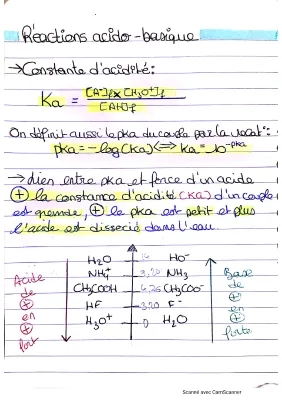 Réactions acido-basique
→ Constante d'acidité :
Ka = [A-]f x [H3O+]f / [AH]f
On définit aussi le pka du couple par la relat° :
pka = - log(Ka) <=> Ka = 10^-pka
→ Lien entre pka et force d'un acide
⊕ la constance d'acidité (KA) d'un couple
est grande, ⊕ le pka est petit et plus
l'acide est dissocié dans l'eau.
H2O 14 HO-
NH4+ 9,20 NH3
CH3COOH 4,75 CH3COO-
HF 3,20 F-
H3O+ 0 H2O
Acide de ⊕ en ⊕ fort
Base de ⊕ en ⊕ forte
Scanné avec CamScanner